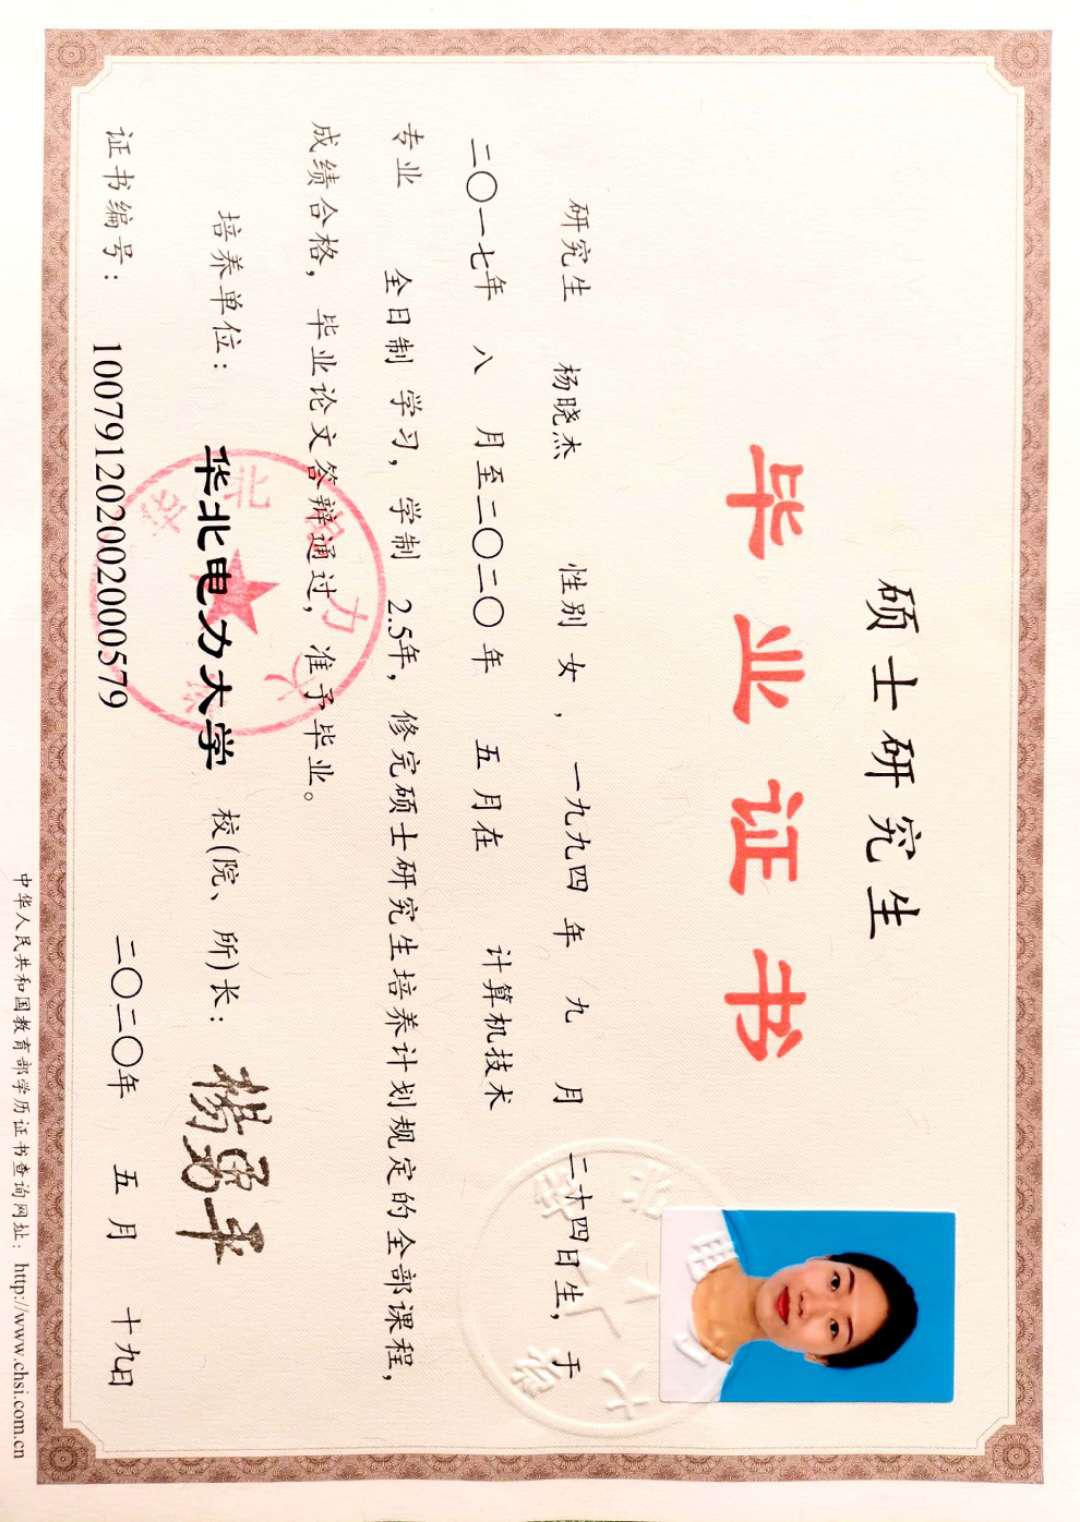 硕士研究生
毕业证书
研究生 杨晓杰 性别 女, 一九九四 年 九 月 二十四日生, 于
二〇一七年 八 月至二〇二〇 年 五 月在 计算机技术
专业 全日制 学习, 学制 2.5年, 修完硕士研究生培养计划规定的全部课程,
成绩合格, 毕业论文答辩通过, 准予毕业。
培养单位: 华北电力大学 校(院、所)长: 杨勇平
证书编号: 100791202002000579 二〇二〇年 五 月 十九日
中华人民共和国教育部学历证书查询网址: http://www.chsi.com.cn